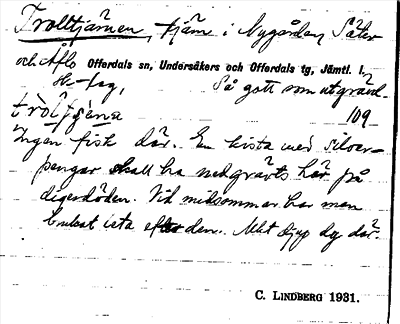 Trolltjärnen, tjärn i Nygården, Säter
och Åflo Offerdals sn, Undersåkers och Offerdals tg, Jämtl. l.
Så gott som utgrävd.
109
Ingen fisk där. En kista med silver-
pengar skall ha nedgrävts här på
digerdöden. Vid midsommar har man
brukat leta efter den. Mkt djup dy där.
C. LINDBERG 1931.